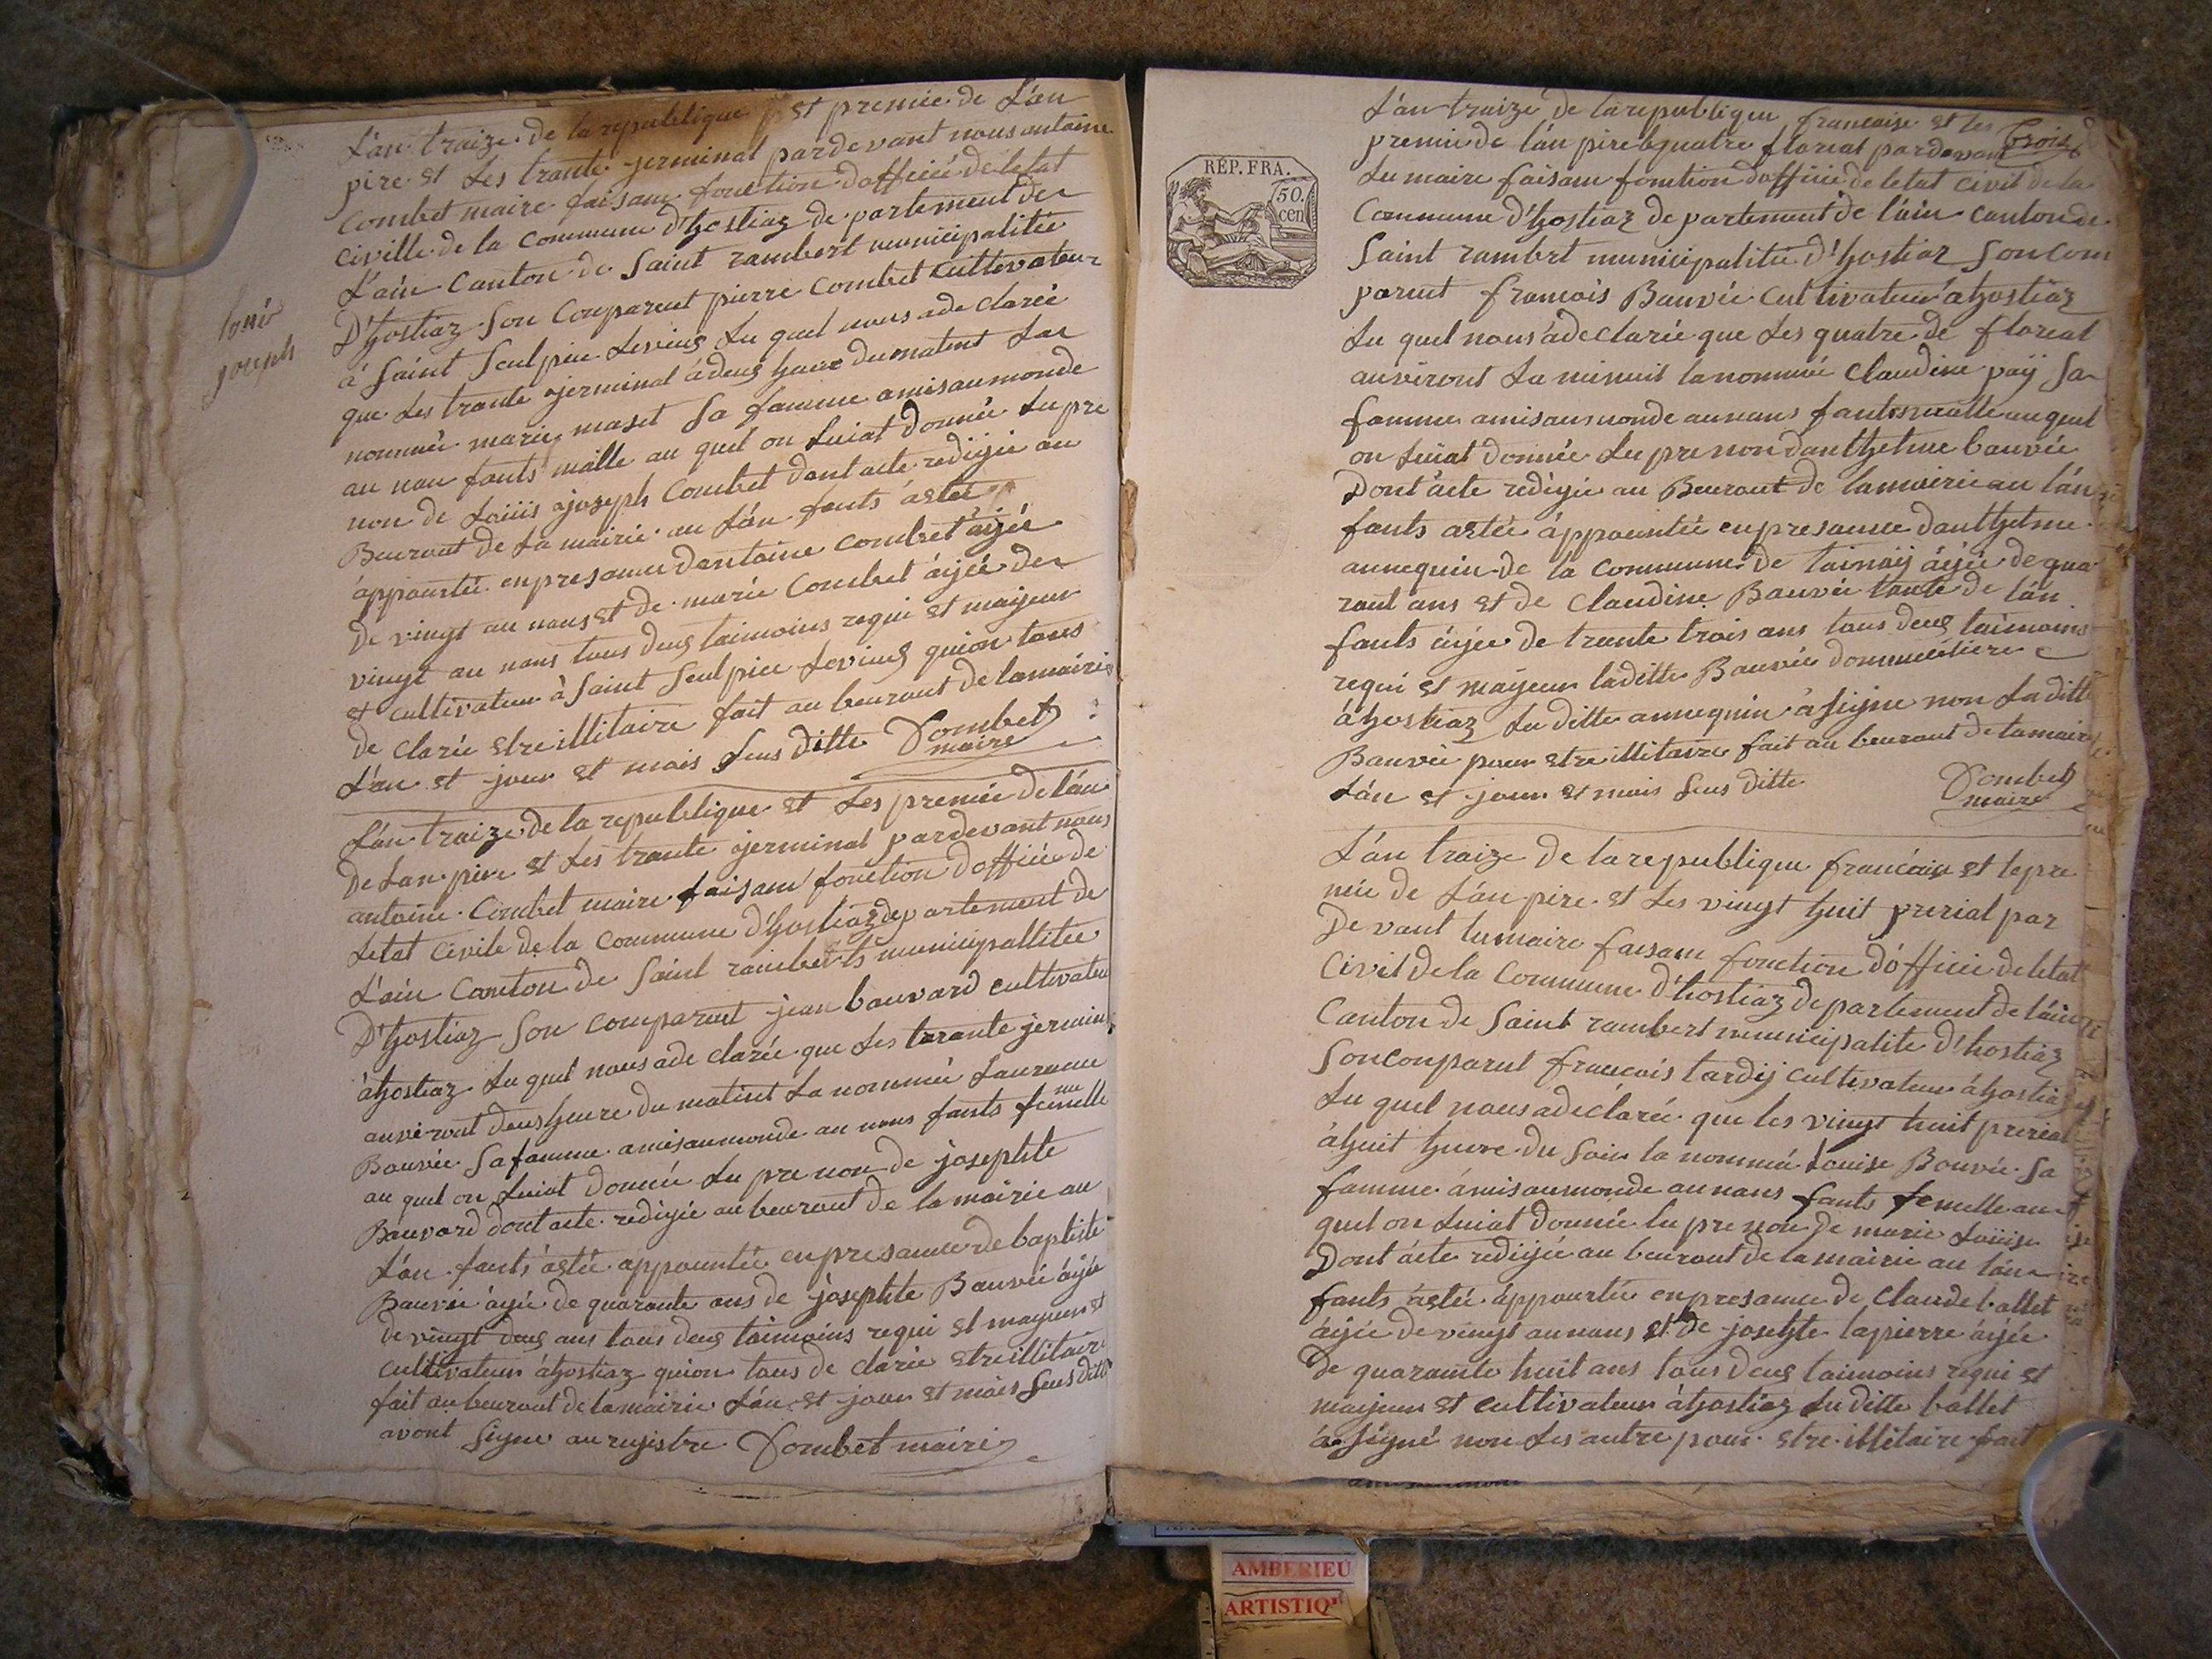 L'an traize de la republique et premie de L'an
pire et Les trante jerminal pardevant nous antoine
Combet maire faisam fonction dofficié de letat
Civille de la Commune d'hostiaz departement de
L'ain Canton de Saint rambert municipalitée
D'hostiaz Son Comparent pierre Combet Cultivateur
à Saint Seulpice Levieus Lu quel nous adeclarée
que Les trante jerminal à deus heure dumatent La
nommée marie maset Sa famme amisaumonde
au nau fants malle au quel on Luiat donnée Lu pre
non de Loüis joseph Combet dont acte redijée au
Beuraut de La mairie au L'án fants astée
appourtée enpresance dantoine Combet aijée
de vingt au nans et de marie Combet aijée de
vingt au nans tous deus taimoins requi et majeur
et cultivateur à Saint Seulpice Levieus quion tous
de clarée etre illitaire fait au beuraut de lamairie
L'an et jour et mois Sus ditte Combet
maire
Loüis
joseph
L'an traize de la republique et Les premée de L'án
De Lan pire et Les trante jerminal pardevant nous
antoine Combet maire faisam fonction dofficiée de
Letat Civile de la Commune d'hostiaz departement de
L'ain Canton de Saint rambert municipallitée
D'hostiaz Son Comparant jean bauvard cultivateu
àhostiaz Lu quel nous ade clarée que Les trante jermin
auviront deus heure du matint La nommée Laurance
Bauvée Sa famme amisaumonde au nans fants femelle
au quel on Luiat donnée Lu pre non de josephte
Bauvard dont acte redijée au beuraut de la mairie au
L'án fants astée appourtée enpresance de baptiste
Bauvée aijée de quarante ans de josephte Bauvée áijée
de vingt deus ans tous deus taimoins requi et majeur et
cultivateur àhostiaz quion tous de clarée etre illitaire
fait au beuraut de lamairie L'án et jour et mois Sus ditte
avont Signe au rejistre Combet maire
RÉP. FRA.
50
cen
trois
L'an traize de la republique francaise et les
premie de l'án pire le quatre floreal pardevant
Lu maire faisam fonction dofficié de letat Civil de la
Commune d'hostiaz departement de l'ain canton de
Saint rambert municipalitée d'hostiaz Son Com
parent francois Bauvée Cultivateur àhostiaz
Lu quel nous adeclarée que Les quatre de floreal
auviront La minuit la nommée Claudine paÿ Sa
famme amisaumonde aunans fants malle auquel
on Luiat donnée Lu pre non danthelme bauvée
Dont acte redijée au Beuraut de lamairie au l'án
fants astée áppourtée enpresance danthelme
annequin de la Commune de tainaÿ áijée de qua
rant ans et de Claudine Bauvée tante de l'án
fants aijée de trante trois ans tous deus taimoins
requi et majeur laditte Bauvée dommicilière
àhostiaz Lu ditte annequin à Signe non La ditte
Bauvée pour etre illitaire fait au beuraut de lamairie
L'án et jour et mois Sus ditte
Combet
maire
L'án traize de la republique francaise et le pre
mie de L'án pire et Les vingt huit prerial par
De vant lu maire faisam fonction dófficié de letat
Civil de la Commune d'hostiaz departement de láin
Canton de Saint rambert municipalite d'hostiaz
Son Comparut francois tardij Cultivateur áhostiaz
Lu quel nous adeclarée que les vingt huit prerial
àhuit heure du Soir la nommée Louise Bauvée Sa
famme ámisaumonde aunans fants femelle au
quel on Luiat donnée lu pre non de marie Loüise
Dont ácte redijée au beuraut de la mairie au l'án
fants ástée áppourtée enpresance de Claude ballet
áijée de vingt aunans et de josephte lapierre áijée
de quarante huit ans tous deus taimoins requi et
majeur et cultivateur áhostiaz Lu ditte ballet
à Signé non Les autre pour etre illitaire fait
AMBERIEU
ARTISTIQ